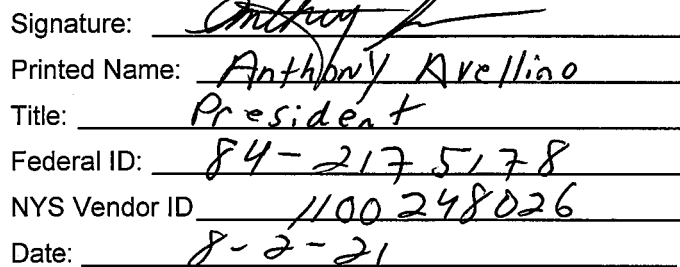 Signature: Anthony
Printed Name: Anthony Avellino
Title: President
Federal ID: 84-2175178
NYS Vendor ID 1100248026
Date: 8-2-21